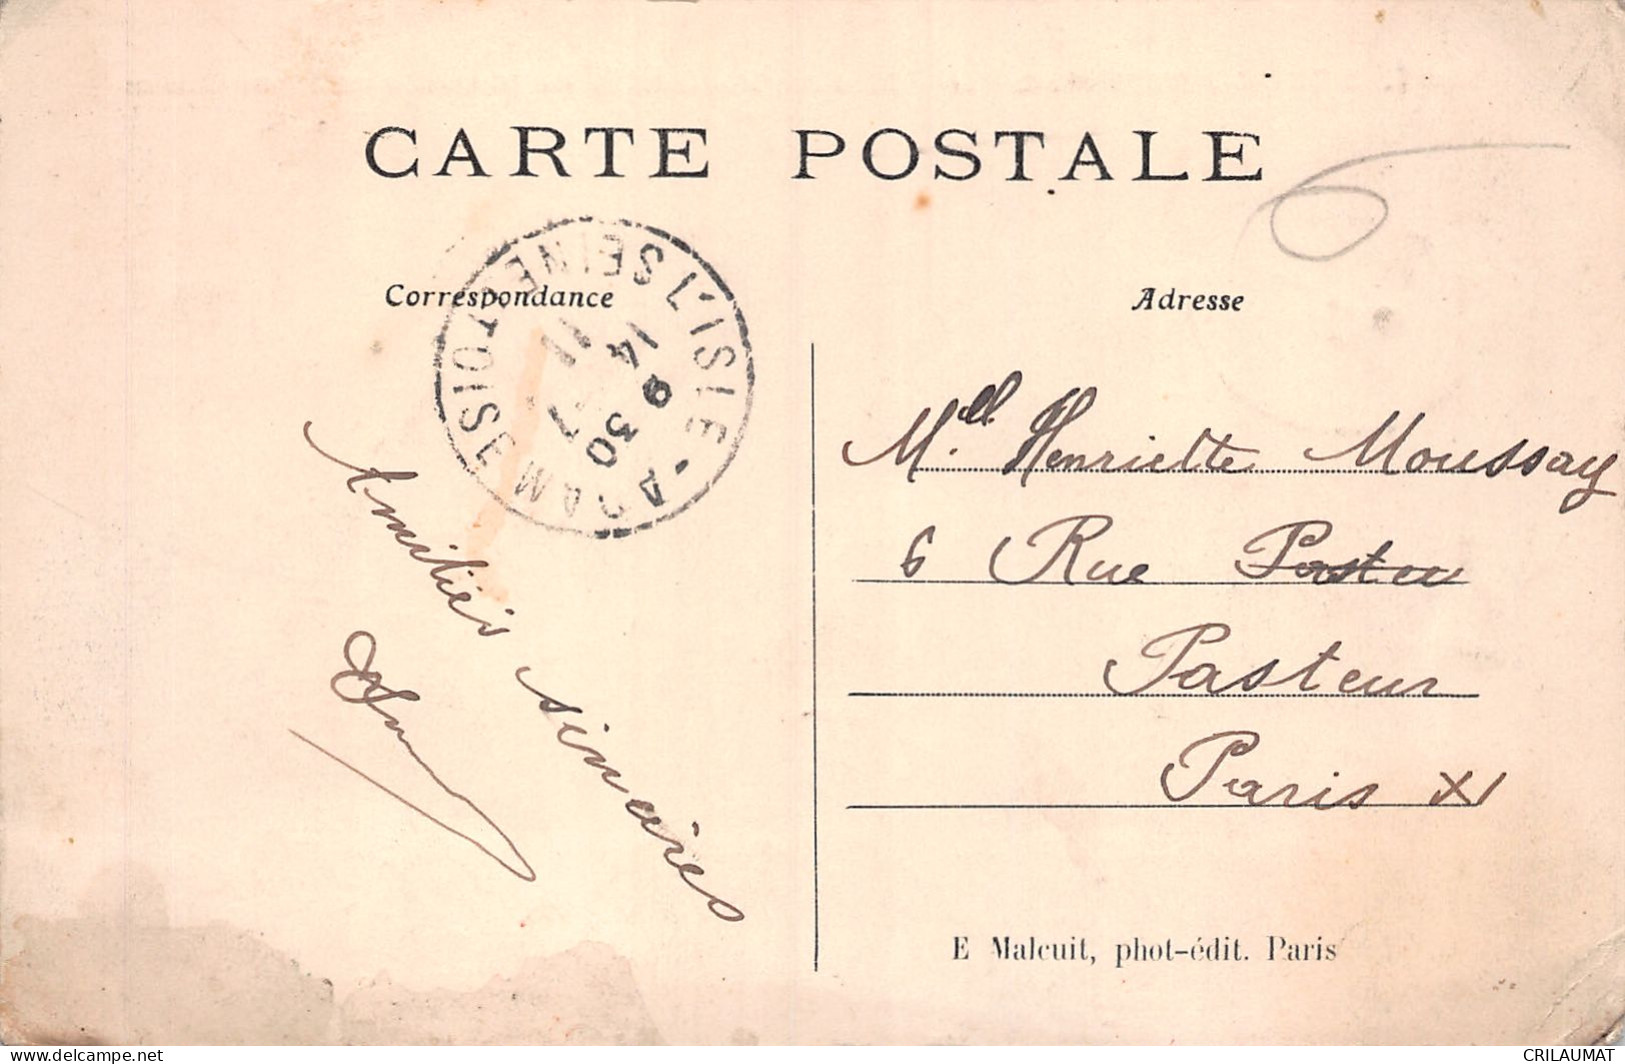 CARTE POSTALE
6
Correspondance
Adresse
L'ISLE-ADAM
SEINE ET OISE
14
9 30
11
7
Amitiés sincères
M.ell Henriette Moussay
6 Rue Pasteu
Pasteur
Paris XI
E Malcuit, phot-édit. Paris
delcampe.net
CRILAUMAT